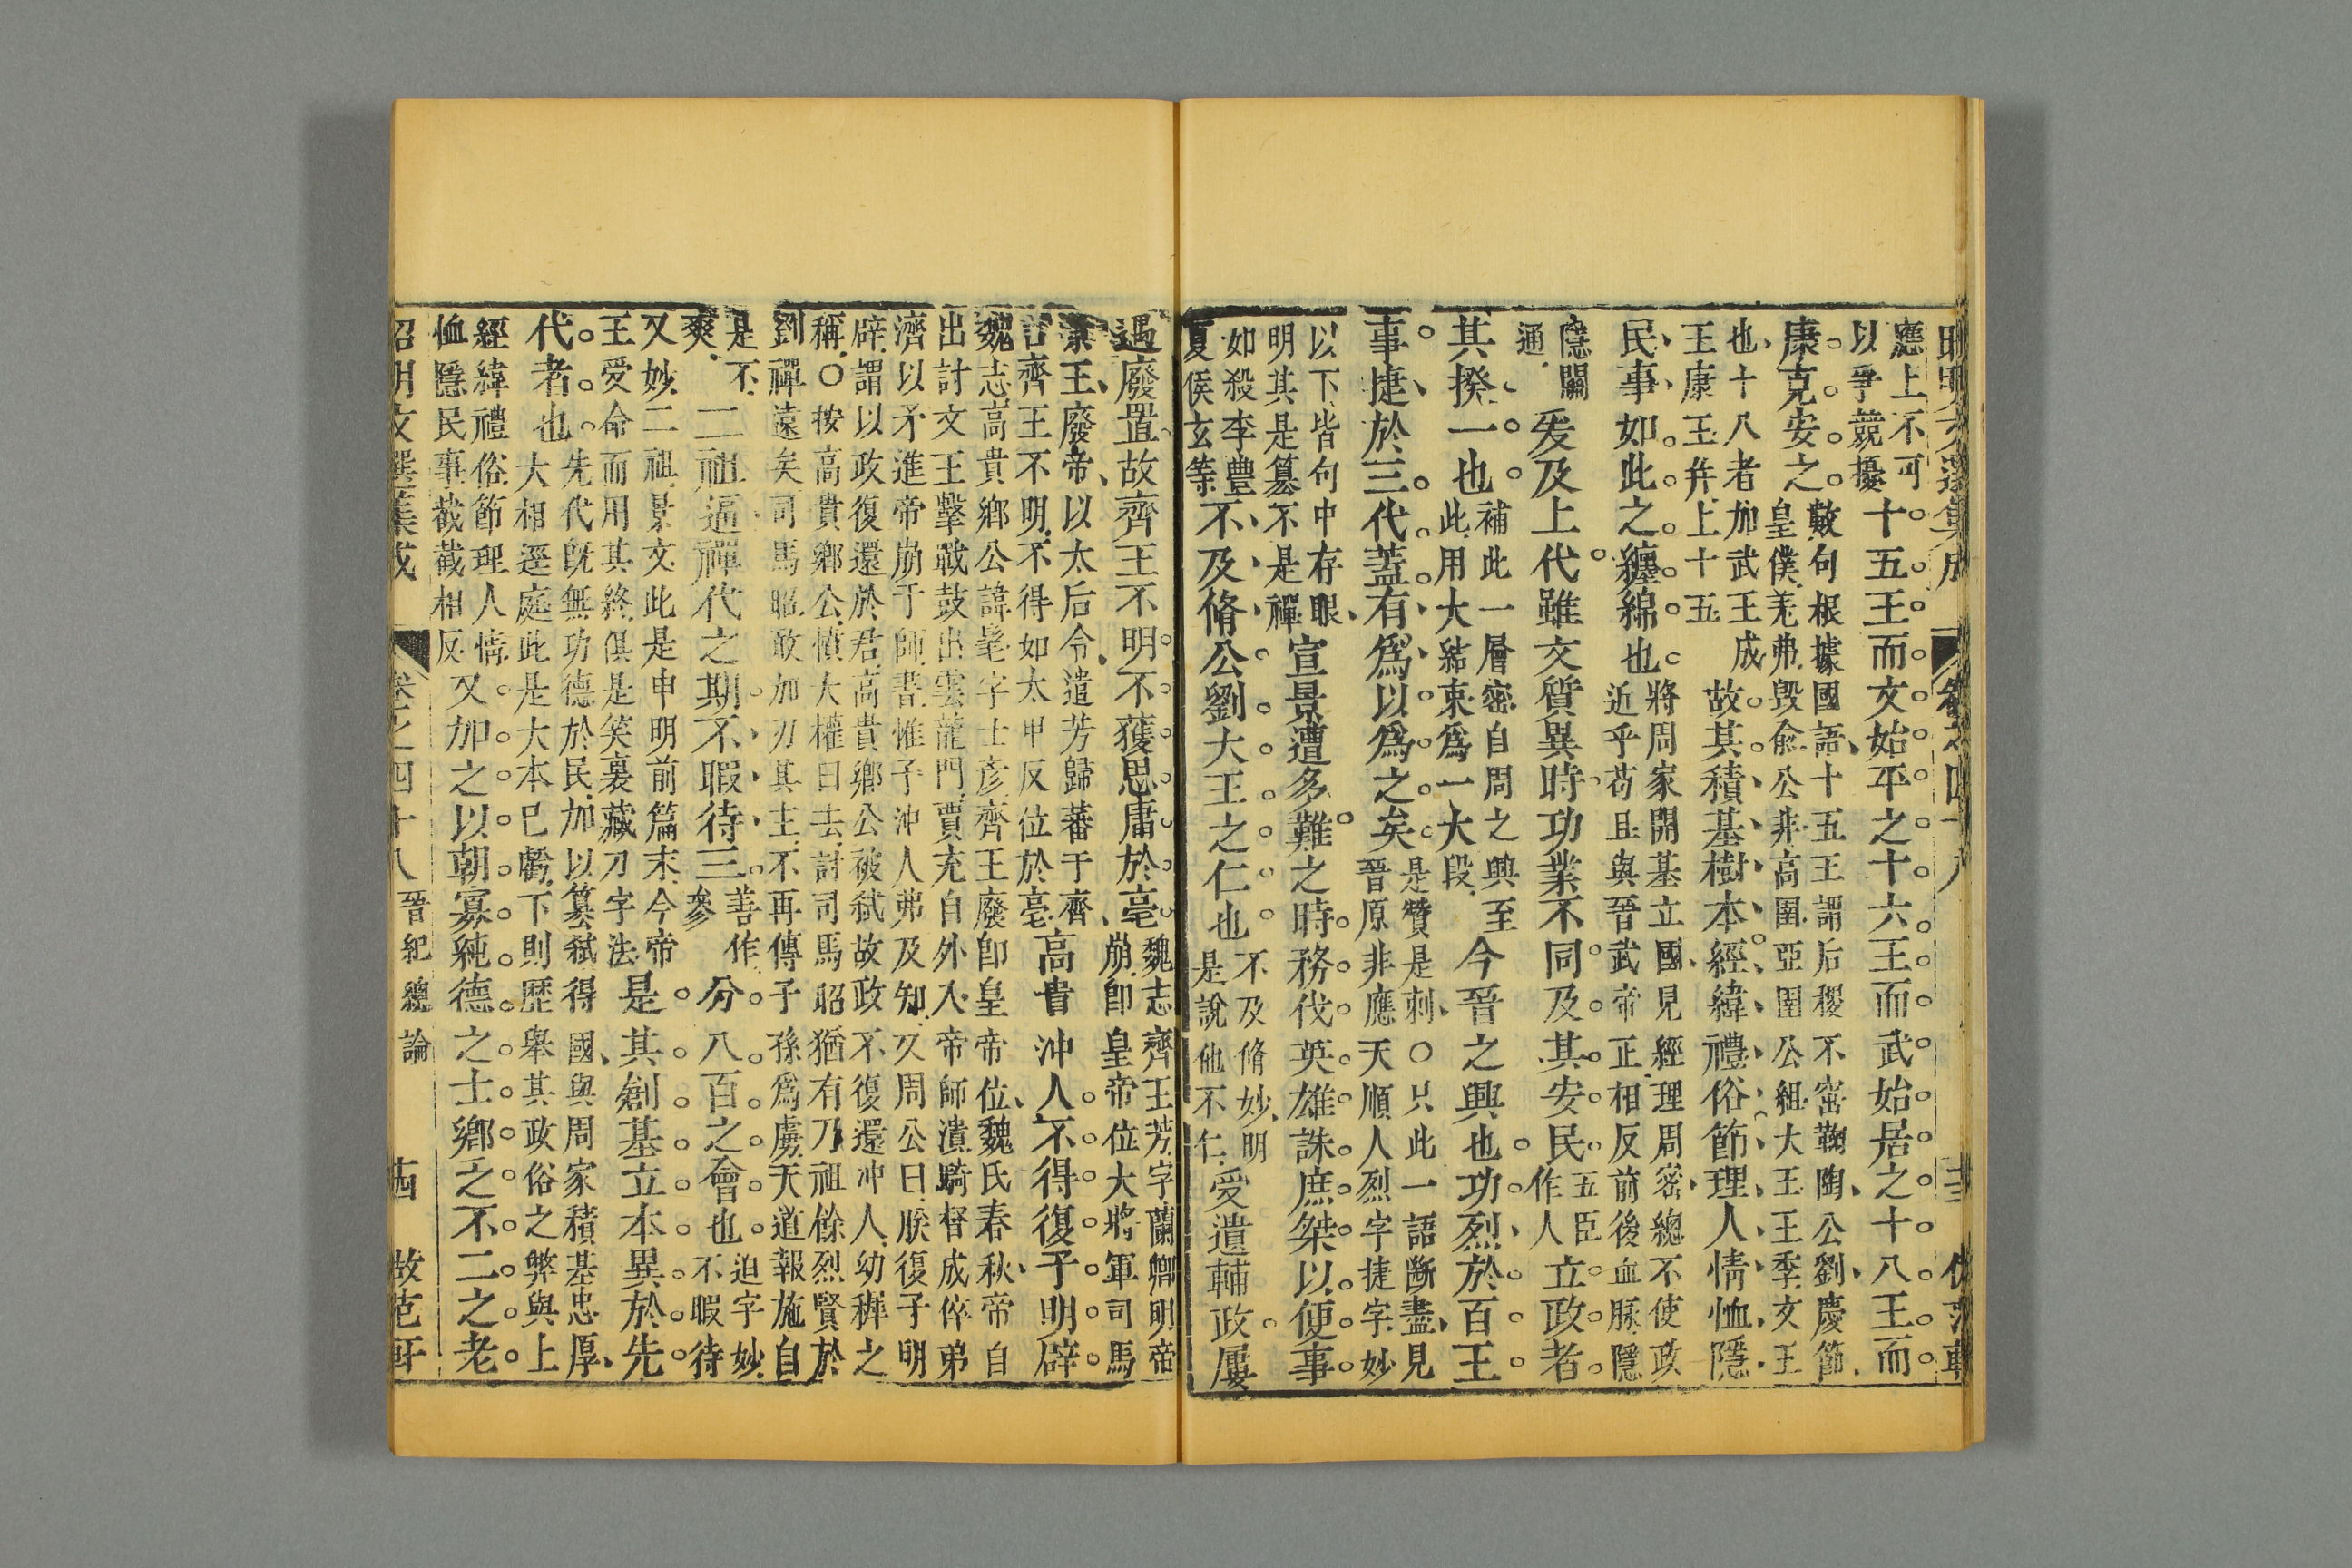 昭明文選集成 卷之四十八
應上不可
以爭競擾
十五王而文始平之十六王而武始居之十八王而
康克安之
數句根據國語十五王謂后稷不窋鞠陶公劉慶節
皇僕羌弗毀俞公非高圉亞圉公組大王王季文王
也十八者加武王成
王康王幷上十五
故其積基樹本經緯禮俗節理人情恤隱
民事如此之纏綿也
將周家開基立國見經理周密總不使政
近乎苟且與晉武帝正相反前後血脉隱
隱關
通
爰及上代雖文質異時功業不同及其安民
五臣
作人
立政者
其揆一也
補此一層密自周之興至
此用大結束爲一大段
今晉之興也功烈於百王
事捷於三代蓋有爲以爲之矣
是贊是刺○只此一語斷盡見
晉原非應天順人烈字捷字妙
以下皆句中存眼
明其是篡不是禪
宣景遭多難之時務伐英雄誅庶桀以便事
如殺李豐
夏侯玄等
不及脩公劉大王之仁也
不及脩妙明
是說他不仁
受遺輔政屢
遇廢置故齊王不明不獲思庸於亳
魏志齊王芳字蘭卿明帝
崩卽皇帝位大將軍司馬
景王廢帝以太后令遣芳歸蕃于齊
言齊王不明不得如太甲反位於亳
高貴沖人不得復子明辟
魏志高貴鄉公諱髦字士彥齊王廢卽皇帝位魏氏春秋帝自
出討文王擊戰鼓出雲龍門賈充自外入帝師潰騎督成倅弟
濟以矛進帝崩于師書惟子沖人弗及知又周公曰朕復子明
辟謂以政復還於君高貴鄉公被弑故政不復還冲人幼稺之
稱○按高貴鄉公憤大權日去討司馬昭猶有乃祖餘烈賢於
劉禪遠矣司馬昭敢加刃其主不再傳子孫爲虜天道報施自
是不
爽
二祖逼禪代之期不暇待三
善作
參
分八百之會也
迫字妙
不暇待
又妙二祖景文此是申明前篇末今帝
王受命而用其終俱是笑裏藏刀字法
是其創基立本異於先
代者也
先代旣無功德於民加以篡弑得國與周家積基忠厚
大相逕庭此是大本已虧下則歷舉其政俗之弊與上
經緯禮俗節理人情
恤隱民事截截相反
又加之以朝寡純德之士鄉乏不二之老
昭明文選集成 卷之四十八 晉紀總論 十四 倣范軒